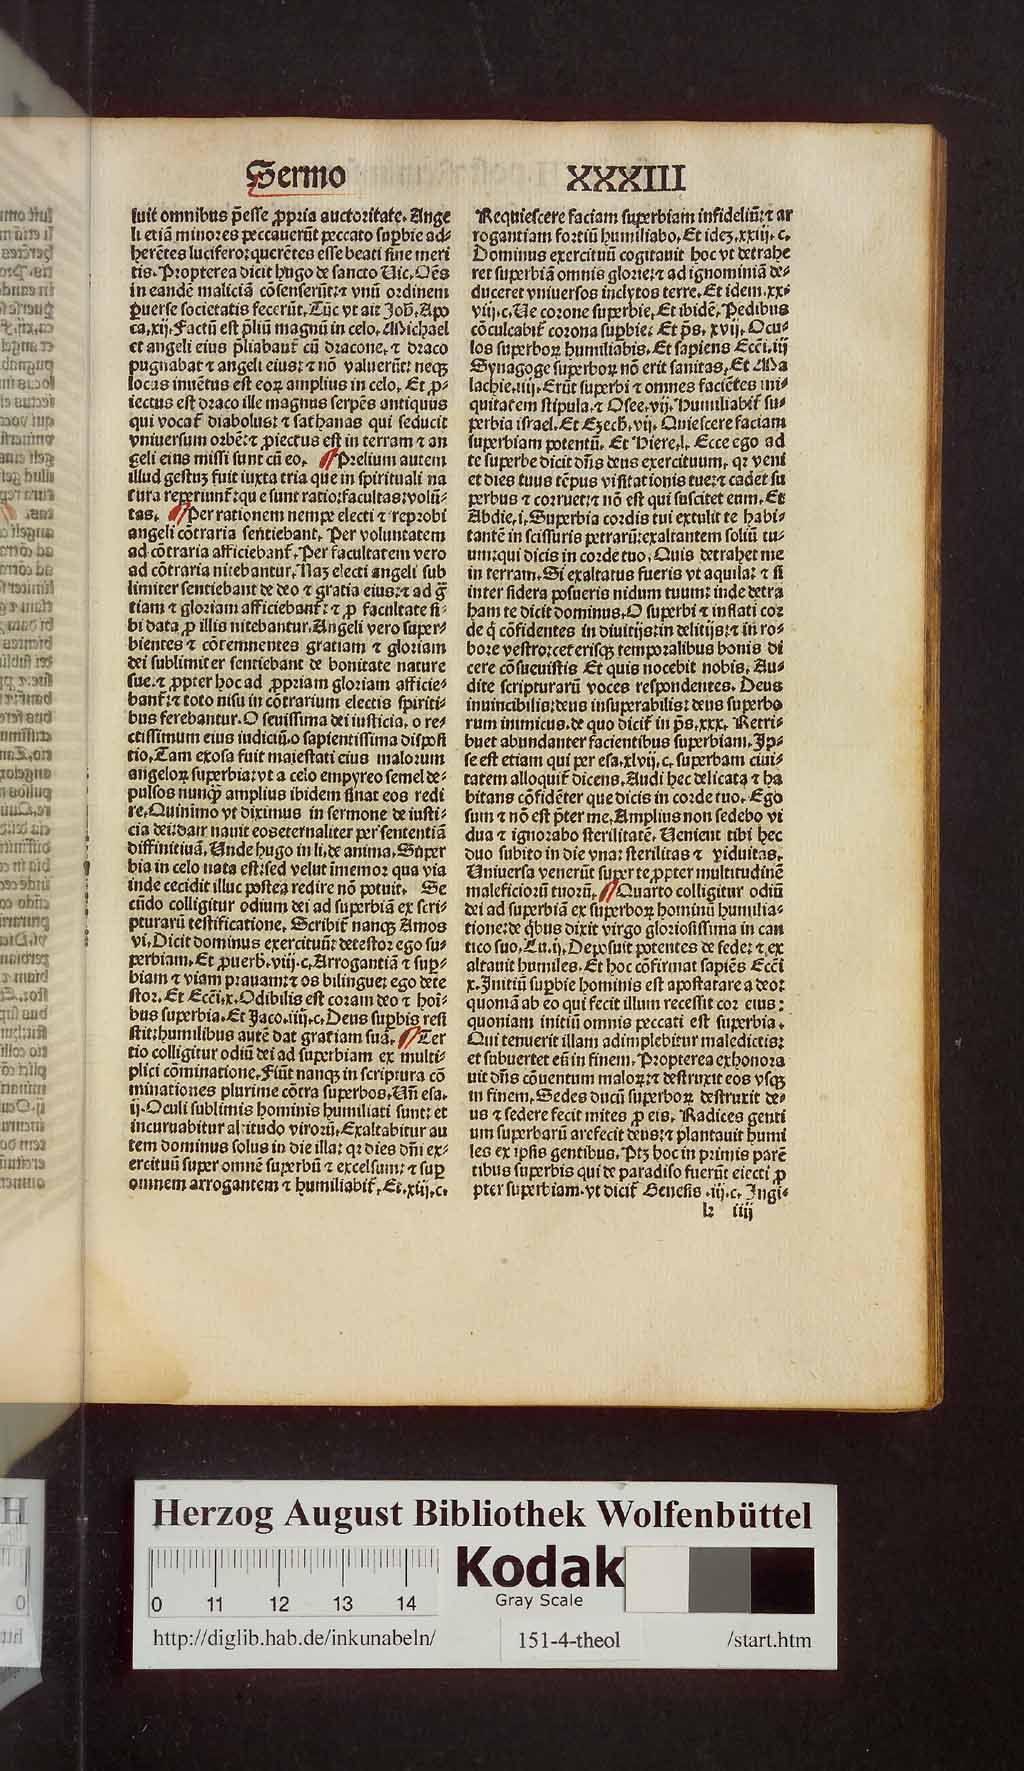 Sermo XXXIII
luit omnibus p̄esse ꝓpria auctoritate. Ange
li etiā minores peccauerūt peccato suꝑbie ad-
herētes lucifero: querētes esse beati sine meri
tis. Propterea dicit hugo de sancto Uic. Oēs
in eandē maliciā cōsenserūt: ⁊ vnū ordinem
ꝑuerse societatis fecerūt. Tūc vt ait Joh̄. Apo
ca. xij. Factū est p̄liū magnū in celo. Michael
et angeli eius p̄liabant̄ cū dracone, ⁊ draco
pugnabat ⁊ angeli eius: ⁊ nō valuerūt: neqꝫ
locus inuētus est eoꝝ amplius in celo. Et ꝓ-
iectus est draco ille magnus serpēs antiquus
qui vocat̄ diabolus: ⁊ sathanas qui seducit
vniuersum orbē: ⁊ ꝓiectus est in terram ⁊ an
geli eius missi sunt cū eo. ¶ Prelium autem
illud gestuꝫ fuit iuxta tria que in spirituali na
tura reperiunt̄: que sunt ratio: facultas: volū-
tas. ¶ Per rationem nempe electi ⁊ reprobi
angeli cōtraria sentiebant. Per voluntatem
ad cōtraria afficiebant̄. Per facultatem vero
ad cōtraria nitebantur. Naꝫ electi angeli sub
limiter sentiebant de deo ⁊ gratia eius: ⁊ ad ḡ
tiam ⁊ gloriam afficiebant̄: ⁊ ꝓ facultate si-
bi data ꝓ illis nitebantur. Angeli vero super-
bientes ⁊ cōtemnentes gratiam ⁊ gloriam
dei sublimiter sentiebant de bonitate nature
sue: ⁊ ꝓpter hoc ad ꝓpriam gloriam afficie-
bant̄: ⁊ toto nisu in cōtrarium electis spiriti-
bus ferebantur. O seuissima dei iusticia. o re-
ctissimum eius iudiciū. o sapientissima disposi
tio. Tam exosa fuit maiestati eius malorum
angeloꝝ superbia: vt a celo empyreo semel de-
pulsos nunqꝫ amplius ibidem sinat eos redi
re. Quinimo vt diximus in sermone de iusti-
cia dei: damnauit eos eternaliter per sententiā
diffinitiuā. Unde hugo in li. de anima. Super
bia in celo nata est: sed velut īmemor qua via
inde cecidit illuc postea redire nō potuit. Se
cūdo colligitur odium dei ad superbiā ex scri-
pturarū testificatione. Scribit̄ nanqꝫ Amos
vi. Dicit dominus exercituū: detestor ego su-
perbiam. Et ꝓuerb̄. viij. c. Arrogantiā ⁊ suꝑ-
biam ⁊ viam prauam: ⁊ os bilingue: ego dete
stor. Et Ecc̄i. x. Odibilis est coram deo ⁊ hoī-
bus superbia. Et Jaco. iiij. c. Deus suꝑbis resi
stit: humilibus autē dat gratiam suā. ¶ Ter
tio colligitur odiū dei ad superbiam ex multi-
plici cōminatione. Fiūt nanqꝫ in scriptura cō
minationes plurime cōtra superbos. Un̄ esa.
ij. Oculi sublimis hominis humiliati sunt: et
incuruabitur altitudo viroꝝ. Exaltabitur au
tem dominus solus in die illa: qꝛ dies dn̄i ex-
ercituū super omnē superbū ⁊ excelsum: ⁊ suꝑ
omnem arrogantem ⁊ humiliabit̄. Et. xiij. c.
Requiescere faciam superbiam infideliū: ⁊ ar
rogantiam fortiū humiliabo. Et ideꝫ. xxiij. c.
Dominus exercituū cogitauit hoc vt detrahe
ret superbiā omnis glorie: ⁊ ad ignominiā de-
duceret vniuersos inclytos terre. Et idem. xx-
viij. c. Ue corone superbie. Et ibidē. Pedibus
cōculcabit̄ corona suꝑbie: Et p̄s. xvij. Ocu-
los superboꝝ humiliabis. Et sapiens Ecc̄i. iij
Synagoge superboꝝ nō erit sanitas. Et Ma
lachie. iiij. Erūt superbi ⁊ omnes faciētes ini-
quitatem stipula. ⁊ Osee. vij. Humiliabit̄ su-
perbia israel. Et Ezech̄. vij. Quiescere faciam
superbiam potentū. Et Hiere. l. Ecce ego ad
te superbe dicit dn̄s deus exercituum. qꝛ veni
et dies tuus tēpus visitationis tue: ⁊ cadet su
perbus ⁊ corruet: ⁊ nō est qui suscitet eum. Et
Abdie. i. Superbia cordis tui extulit te habi-
tantē in scissuris petrarū: exaltantem soliū tu-
um: qui dicis in corde tuo. Quis detrahet me
in terram. Si exaltatus fueris vt aquila: ⁊ si
inter sidera posueris nidum tuum: inde detra
ham te dicit dominus. O superbi ⁊ inflati cor
de q̇ cōfidentes in diuitijs: in delitijs: ⁊ in ro-
bore vestro: ceterisqꝫ temporalibus bonis di
cere cōsueuistis Et quis nocebit nobis. Au-
dite scripturarū voces respondentes. Deus
inuincibilis: deus insuperabilis: deus superbo
rum inimicus. de quo dicit̄ in p̄s. xxx. Retri-
buet abundanter facientibus superbiam. Ip-
se est etiam qui per esa. xlvij. c. superbam ciui-
tatem alloquit̄ dicens. Audi hec delicata ⁊ ha
bitans cōfidēter que dicis in corde tuo. Ego
sum ⁊ nō est p̄ter me. Amplius non sedebo vi
dua ⁊ ignorabo sterilitatē. Uenient tibi hec
duo subito in die vna: sterilitas ⁊ viduitas.
Uniuersa venerūt super te ꝓpter multitudinē
maleficiorū tuorū. ¶ Quarto colligitur odiū
dei ad superbiā ex superboꝝ hominū humilia-
tione: de q̇bus dixit virgo gloriosissima in can
tico suo. Lu. ij. Deposuit potentes de sede: ⁊ ex
altauit humiles. Et hoc cōfirmat sapiēs Ecc̄i
x. Initiū suꝑbie hominis est apostatare a deo:
quoniā ab eo qui fecit illum recessit cor eius:
quoniam initiū omnis peccati est superbia.
Qui tenuerit illam adimplebitur maledictis:
et subuertet eū in finem. Propterea exhonora
uit dn̄s cōuentum maloꝝ: ⁊ destruxit eos vsqꝫ
in finem. Sedes ducū superboꝝ destruxit de-
us ⁊ sedere fecit mites ꝓ eis. Radices genti
um superbarū arefecit deus: ⁊ plantauit humi
les ex ipsis gentibus. Ptꝫ hoc in primis parē
tibus superbis qui de paradiso fuerūt eiecti ꝓ
pter superbiam. vt dicit̄ Genesis .iij. c. Ingi-
k iiij
Herzog August Bibliothek Wolfenbüttel
0 11 12 13 14
Kodak
Gray Scale
http://diglib.hab.de/inkunabeln/ 151-4-theol /start.htm